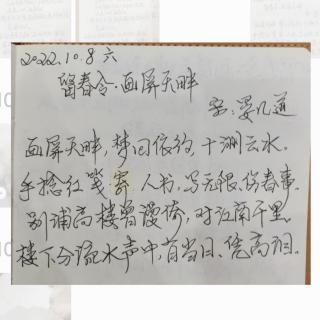 2022.10.8 六
留春令·画屏天畔
宋:晏几道
画屏天畔,梦回依约,十洲云水。
手捻红笺寄人书,写无限、伤春事。
别浦高楼曾漫倚,对江南千里。
楼下分流水声中,有当日、凭高泪。